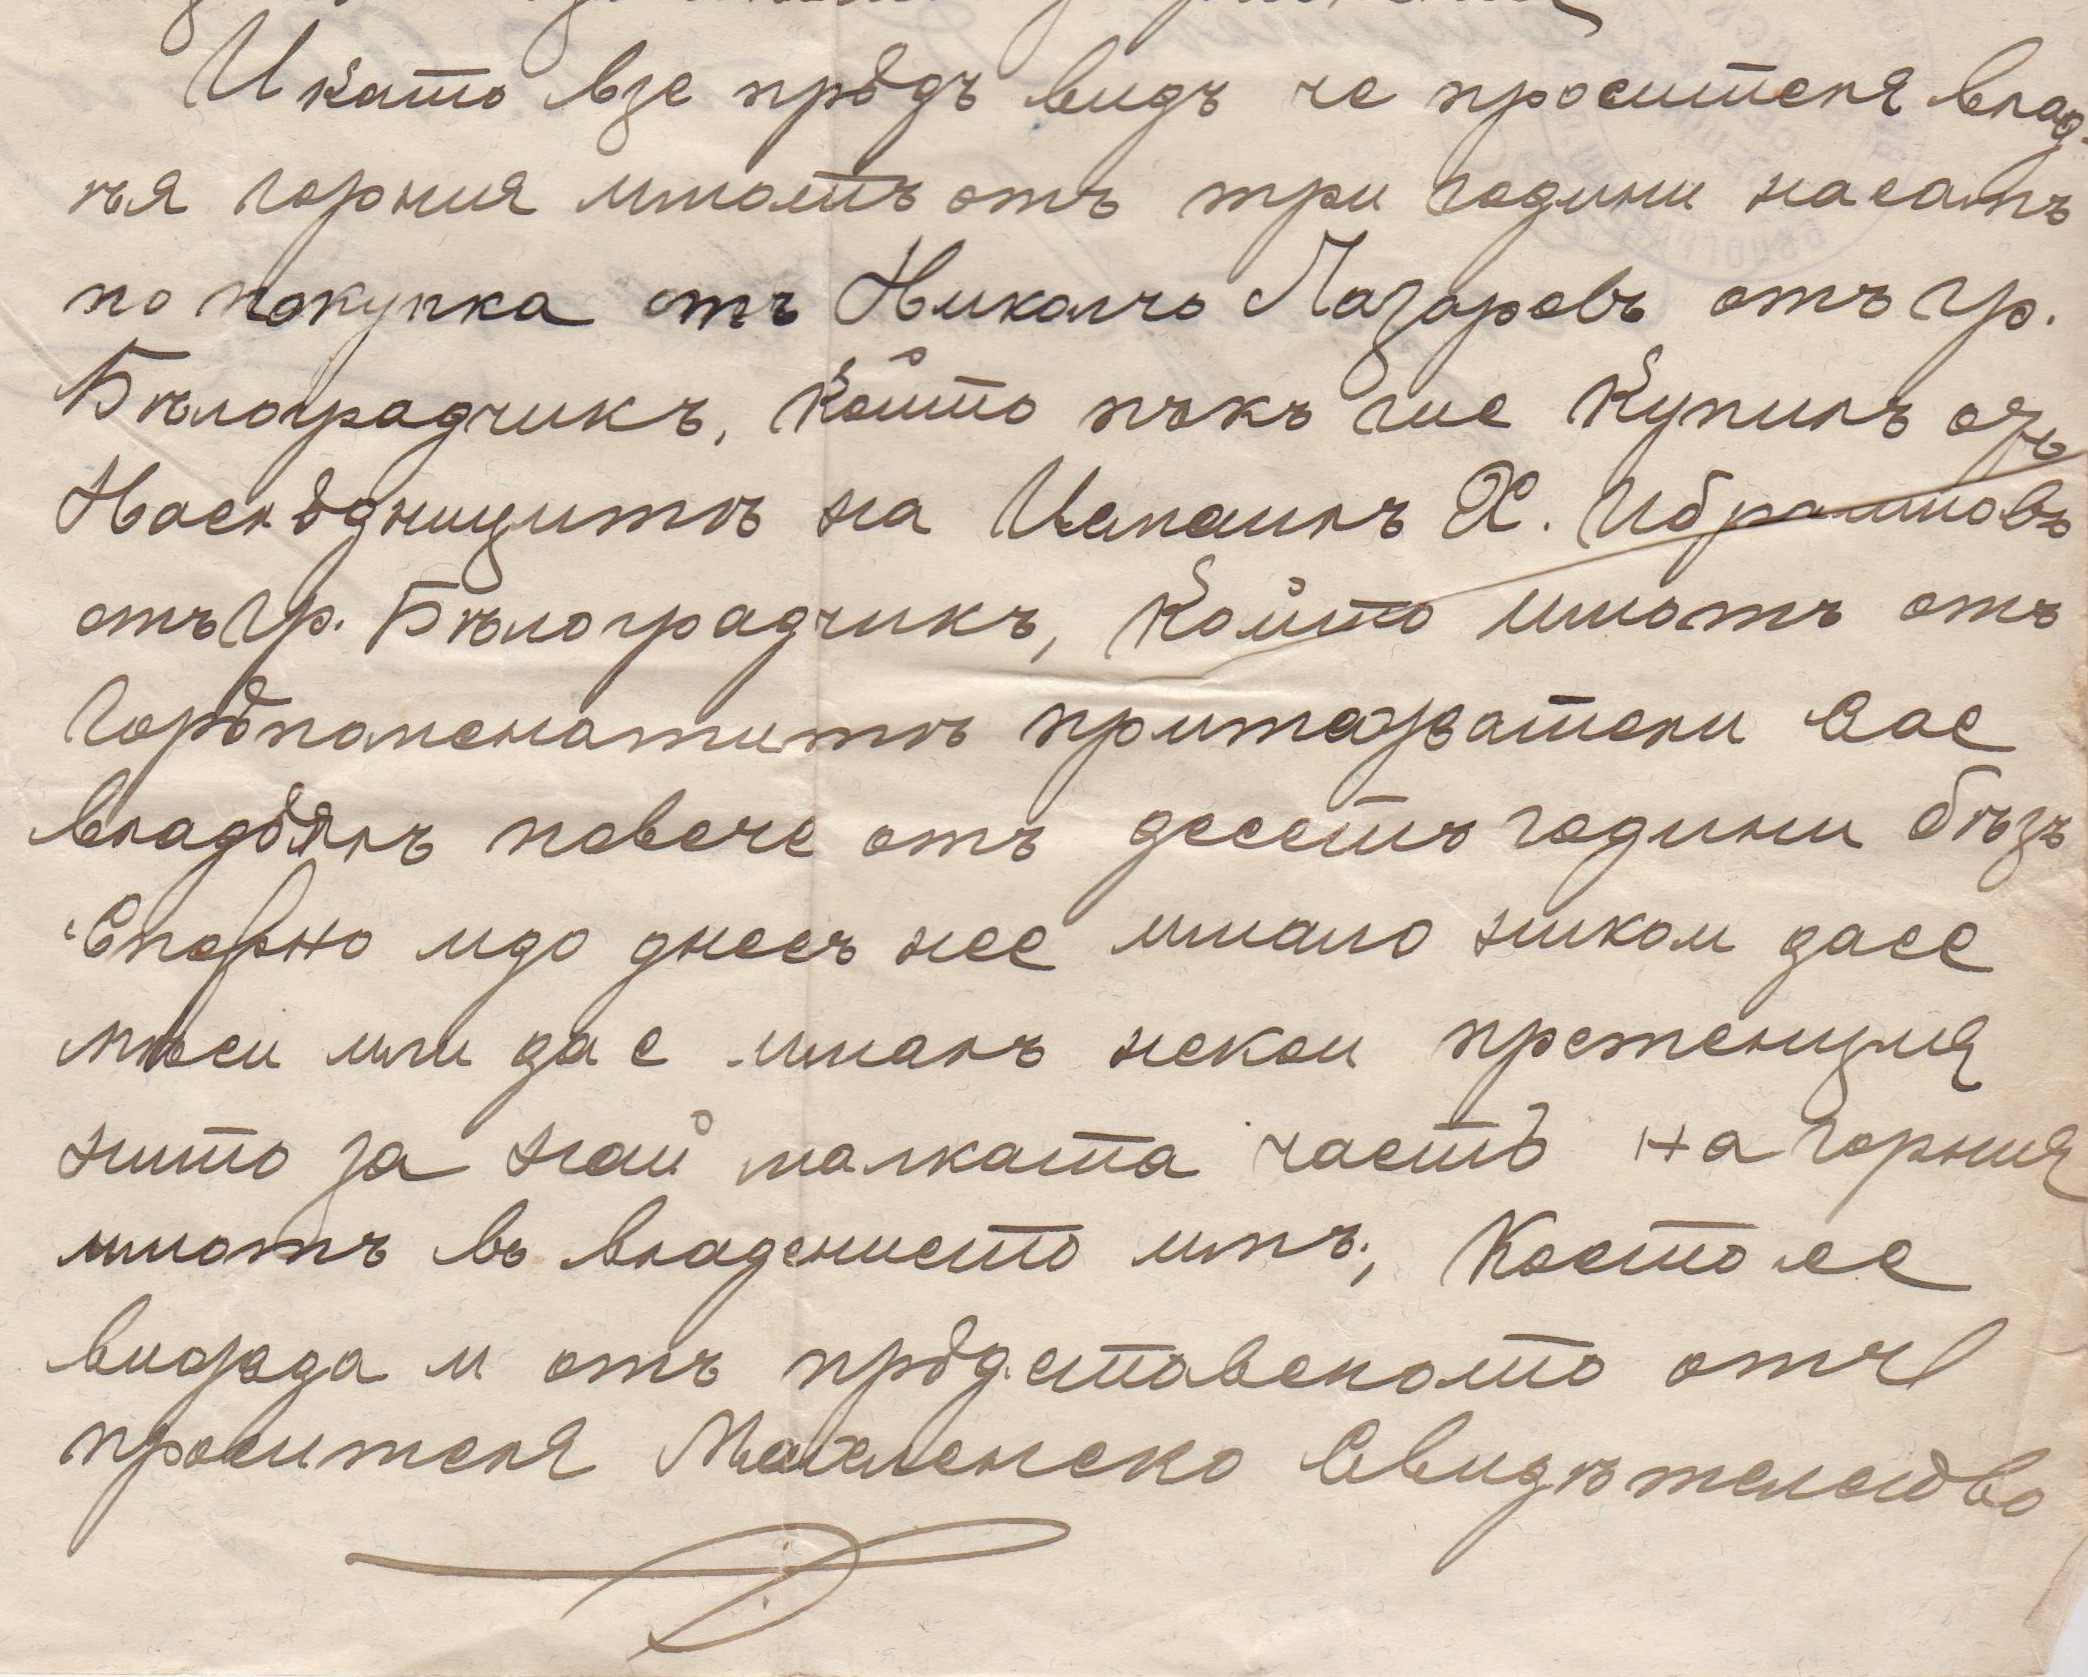 И като взе прѣдъ видъ че просителя влад-
ѣя горния имотъ отъ три години насамъ
по покупка отъ Николчо Лазаровъ отъ гр.
Бѣлоградчикъ, който пъкъ гие купилъ отъ
Наслѣдницитѣ на Исмаилъ Х. Ибраимовъ
отъ гр. Бѣлоградчикъ, който имотъ отъ
горѣпоменатитѣ притежатели сае
владѣялъ повече отъ десеть години бѣзъ
Спорно идо днесъ нее имало никои дасе
мѣси или да е ималъ некои претенция
нито за най малката часть на горния
имотъ въ владението имъ, Коетосе
вижда и отъ прѣдставеното отъ
просителя Махленско Свидѣтелство